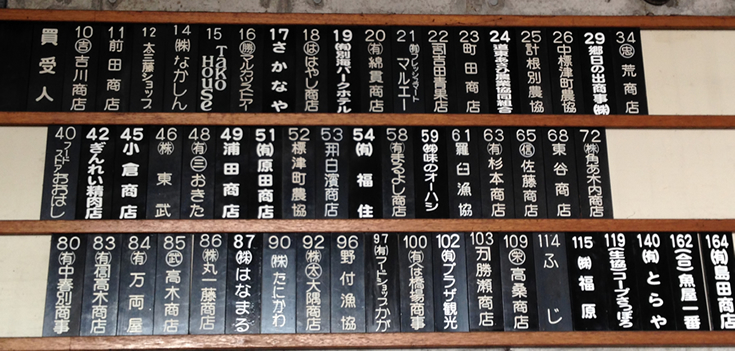 買受人
10 吉 吉川商店
11 前田商店
12 太三藤ショップ
14 ㈱なかしん
15 Tako House
17 さかなや
18 は はやし商店
19 ㈲別海パークホテル
20 ㈲綿貫商店
21 ㈲フレッシュフード マルエー
22 司吉田青果店
23 町田商店
24 道東あさひ農業協同組合
25 計根別農協
26 中標津町農協
29 郷日の出商事㈱
34 忠 荒商店
40 フードストアおおはし
42 ぎんれい精肉店
45 小倉商店
46 ㈱東武
48 ㈲三おきた
49 浦田商店
51 ㈲原田商店
52 標津町農協
53 丼日濱商店
54 ㈲福住
58 ㈲まるよし商店
59 ㈱味のオーハシ
61 羅臼漁協
63 ㈲杉本商店
65 信 佐藤商店
68 東谷商店
72 ㈱角あ木内商店
80 ㈲中春別商事
83 ㈲高木商店
84 ㈲万両屋
85 武 高木商店
86 ㈱丸一藤商店
87 ㈱はなまる
90 ㈱たにかわ
92 ㈱太大隅商店
96 野付漁協
97 ㈲フードショップかが
100 ㈲は橋場商事
102 ㈲プラザ観光
103 カ勝瀬商店
109 栄 高桑商店
114 ふじ
115 ㈱福原
119 生協コープさっぽろ
140 ㈲とらや
162 (合)魚屋一番
164 ㈲島田商店